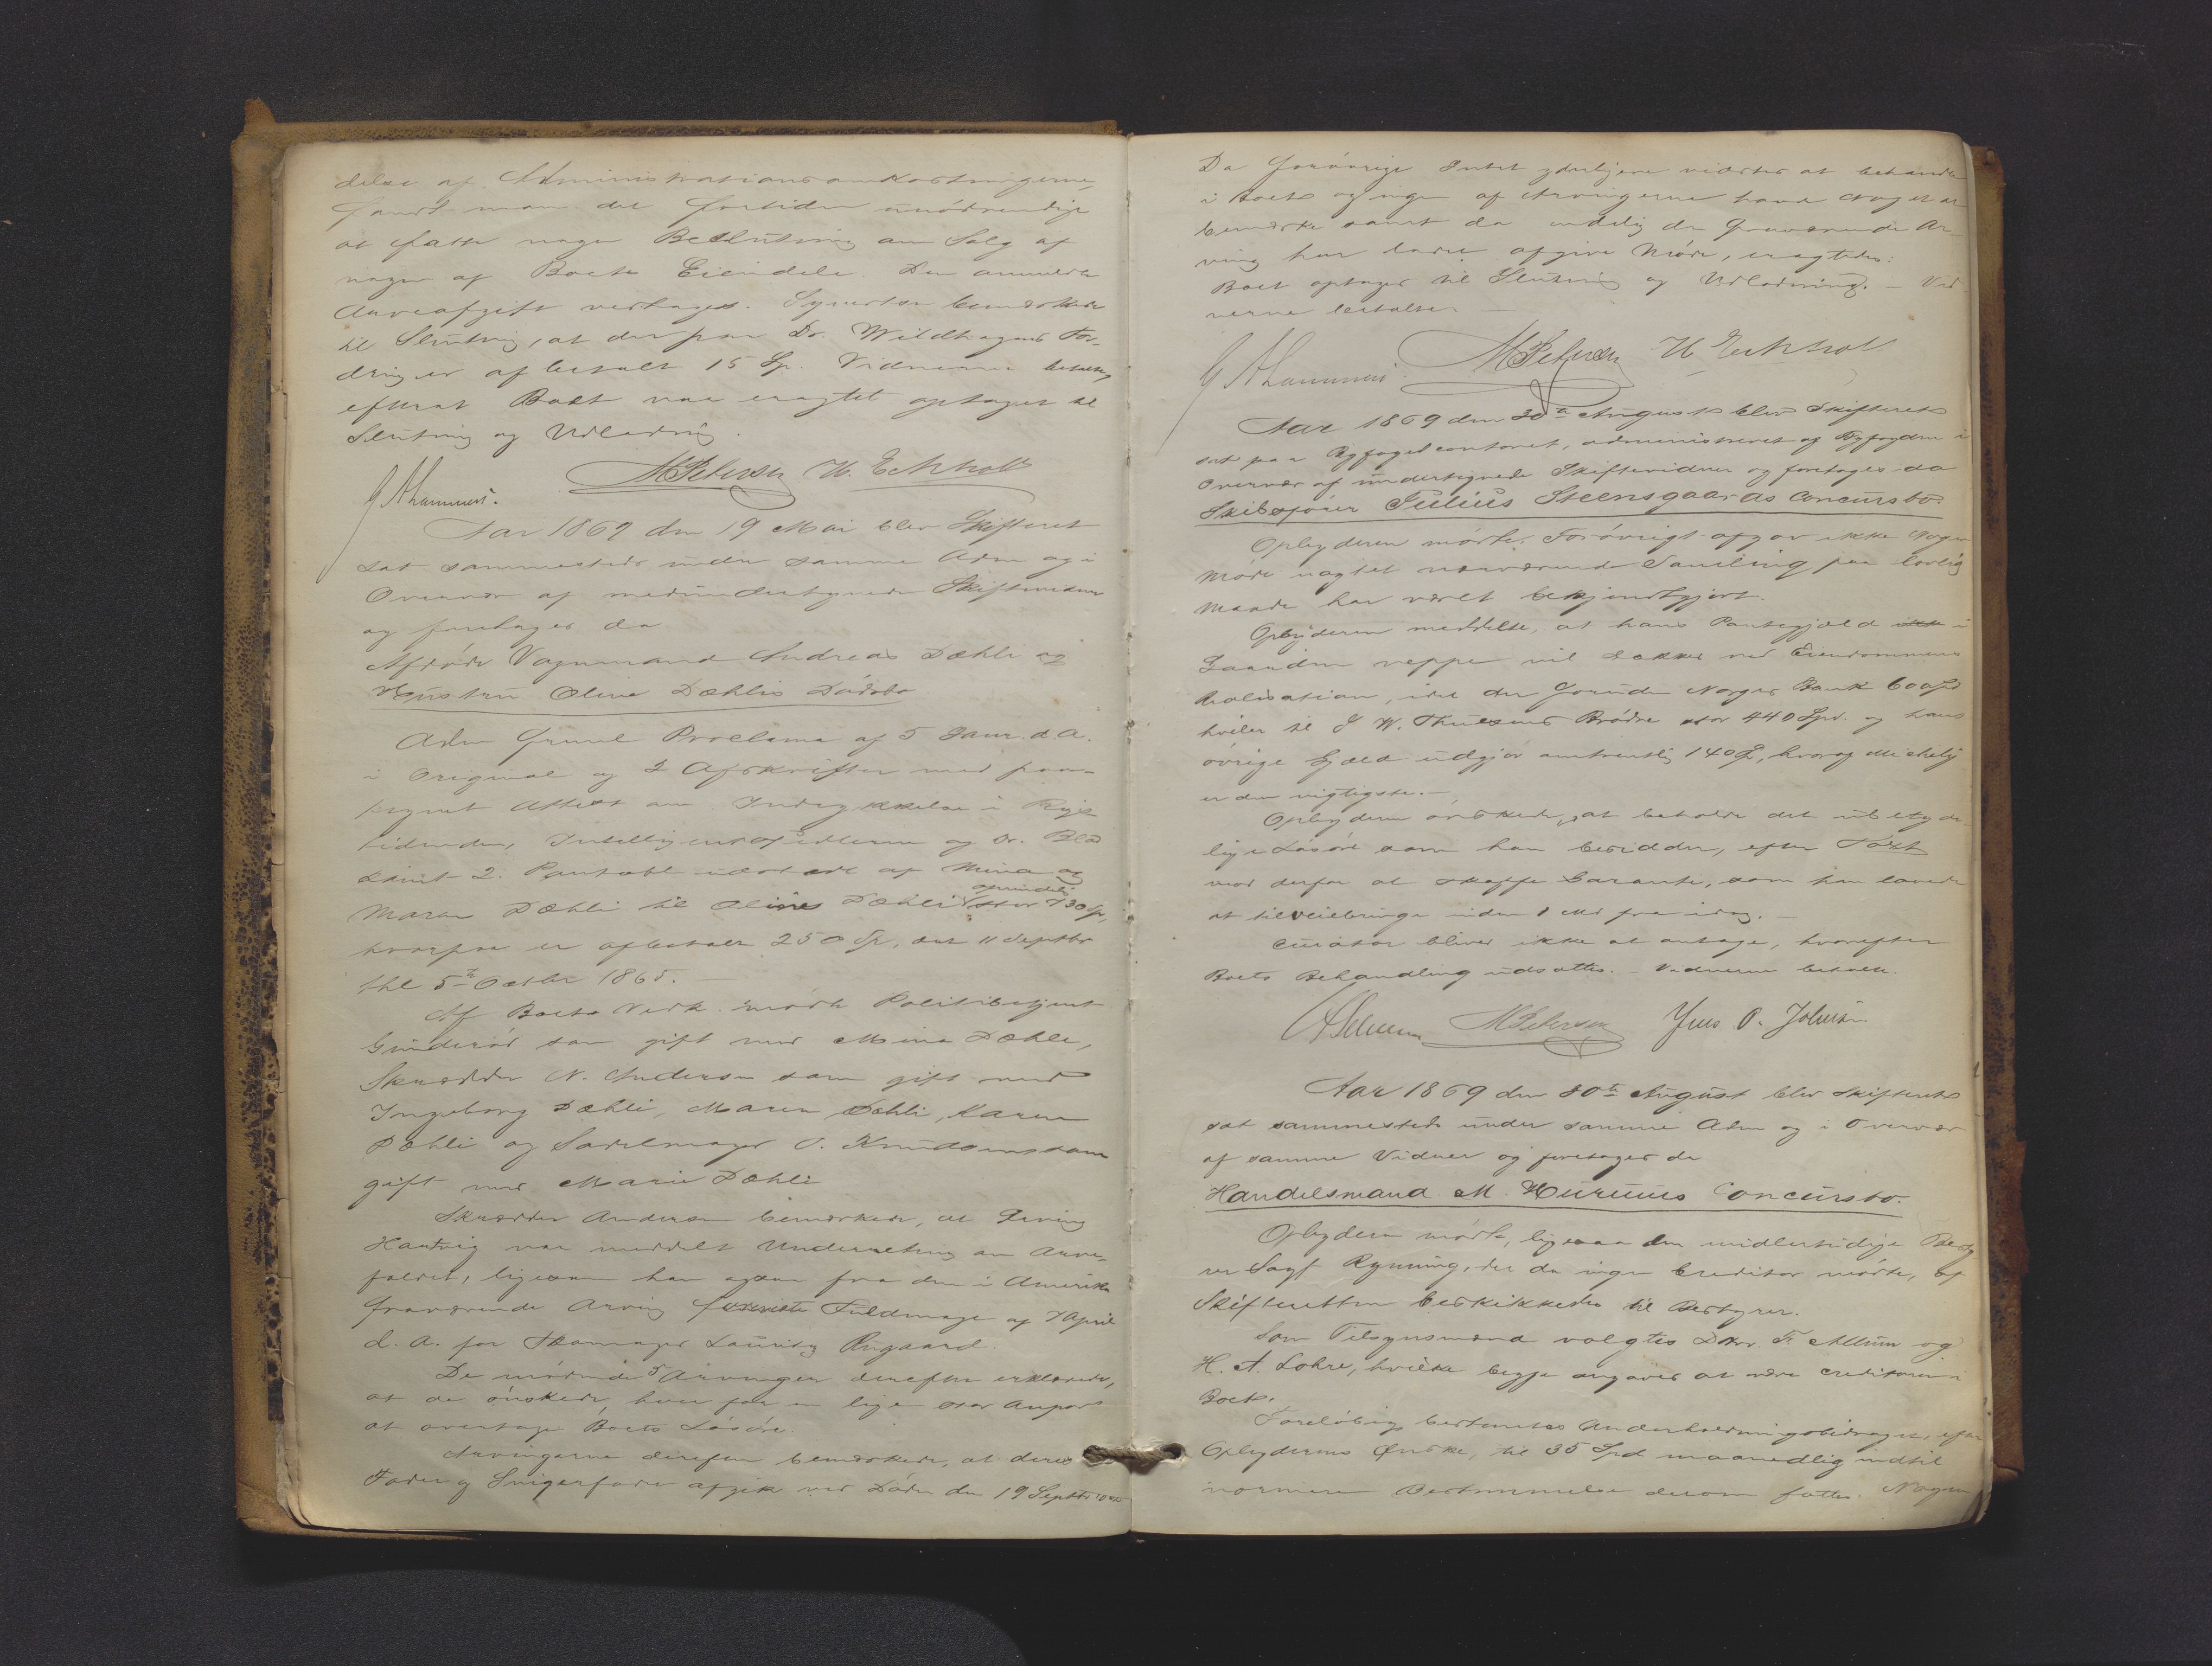 delse af Administrationsomkostningerne,
fandt man det fortiden unödvendigt
at fatte nogen Beslutning om Salg af
nogen af Boets Eiendele. Den anmeldte
Arveafgift vedtages. Syvertsen bemærkede
til Slutning, at der paa Dr. Wildhagens For-
dring er afbetalt 15 Sp. Vidnerne betaltes
efterat Boet var eragtet optaget til
Slutning og Udlodning.
MPetersen H. Eckholt
Aar 1869 den 19 Mai blev Skifteret
sat sammesteds under samme Adm og i
Overvær af medundertegnede Skiftevidner
og foretages da
Afdöde Vognmand Andreas Dæhli og
Hustru Oline Dæhlis Dödsbo
Adm freml Proclama af 5 Janr. d. A.
i Original og 2 Afskrifter med paa-
tegnet Attest om Indrykkelse i Rigs
tidenden, Intelligentssedlerne og Dr. Blad
samt 2. Pantobl udstedt af Mina og
Maren Dæhli til Olines Dæhli oprindelig stor 730 Sp,
hvorpaa er afbetalt 250 Sp, dat 11 Septbr
thl 5te Octbr 1865.
Af Boets Vedk. mödte Politibetjent
Gunderöd som gift med Mina Dæhli,
Skrædder N. Andersen som gift med
Ingeborg Dæhli, Maren Dæhli, Karen
Dæhli og Sadelmager O. Knudsen som
gift med Marie Dæhli
Skrædder Andersen bemærkede, at Arving
Hartvig var meddelt Underretning om Arve-
faldet, ligesom han ogsaa fra den i Amerika
fraværende Arving foreviste Fuldmagt af 7 April
d. A. for Skomager Lauritz Aagaard.
De mödende 5 Arvinger derefter erklærede,
at de önskede, hver for en lige stor Anpart
at overtage Boets Lösöre.
Arvingerne derefter bemærkede, at deres
Fader og Svigerfader afgik ved Döden den 19 Septbr
Da forövrigt Intet yderligere vidstes at behandle
i Boet og ingen af Arvingerne havde Noget at
bemærke samt da endelig den fraværende Ar-
ving har ladet afgive Möde, eragtedes:
Boet optages til Slutning og Udlodning. – Vid
nerne betaltes –
MPetersen H Eckholt
Aar 1869 den 30te August blev Skifteret
sat paa Byfogedcontoret, administreret af Byfogden i
Overvær af undertegnede Skiftevidner og foretages da
Skibsförer Julius Steensgaards Concursbo.
Opbyderen mödte. Forövrigt afgav ikke Nogen
Möde uagtet nærværende Samling paa lovlig
Maade har været bekjendtgjort.
Opbyderen meddelte, at hans Pantegjæld ikke i
Gaarden neppe vil dækkes ved Eiendommens
Realisation, idet der foruden Norges Bank 600 Sp
hviler til J W. Thuesens Brödre stor 440 Spd. og hans
övrige Gjæld udgjör omtrentlig 140 Sp, hvoraf Michelj
er den vigtigste. –
Opbyderen önskede, at beholde det ubetyde
lige Lösöre som han besidder, efter Taxt
mod derfor at skaffe Garanti, som han lovede
at tilveiebringe inden 1 Md fra idag. –
Curator bliver ikke at antage, hvorefter
Boets Behandling udsattes. – Vidnerne betalte.
MPetersen Jens O. Johnsen
Aar 1869 den 30te August blev Skifteret
sat sammesteds under samme Adm og i Overvær
af samme Vidner og foretages da
Handelsmand M. Hurums Concursbo.
Opbyderen mödte, ligesaa den midlertidige Besty
rer Sagf Rynning, der da ingen Creditor mödte, af
Skifteretten beskikkedes til Bestyrer.
Som Tilsynsmænd valgtes Dhrr Fr. Allum og
H. A. Lohre, hvilke begge angaves at være Creditorer i
Boet.
Forelöbig bestemtes Underholdningsbidraget, efter
Opbyderens Önske, til 35 Spd maanedlig indtil
nærmere Bestemmelse derom fattes. Nogen